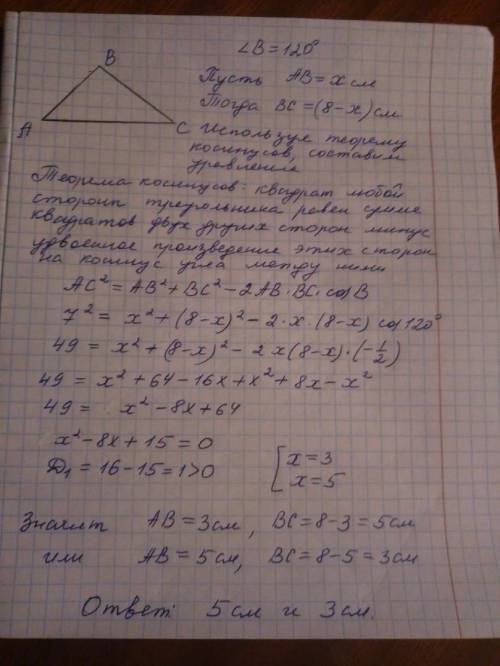 ∠B = 120°
B
Пусть AB = x см
Тогда BC = (8-x) см
A
C
Используя теорему
косинусов, составим
уравнение
Теорема косинусов: квадрат любой
стороны треугольника равен сумме
квадратов двух других сторон минус
удвоенное произведение этих сторон
на косинус угла между ними
AC² = AB² + BC² - 2 AB · BC · cos B
7² = x² + (8-x)² - 2 · x · (8-x) cos 120°
49 = x² + (8-x)² - 2x(8-x) · (-1/2)
49 = x² + 64 - 16x + x² + 8x - x²
49 = x² - 8x + 64
x² - 8x + 15 = 0
D₁ = 16 - 15 = 1 > 0
[ x = 3
x = 5
Значит AB = 3 см, BC = 8 - 3 = 5 см
или AB = 5 см, BC = 8 - 5 = 3 см
Ответ: 5 см и 3 см.